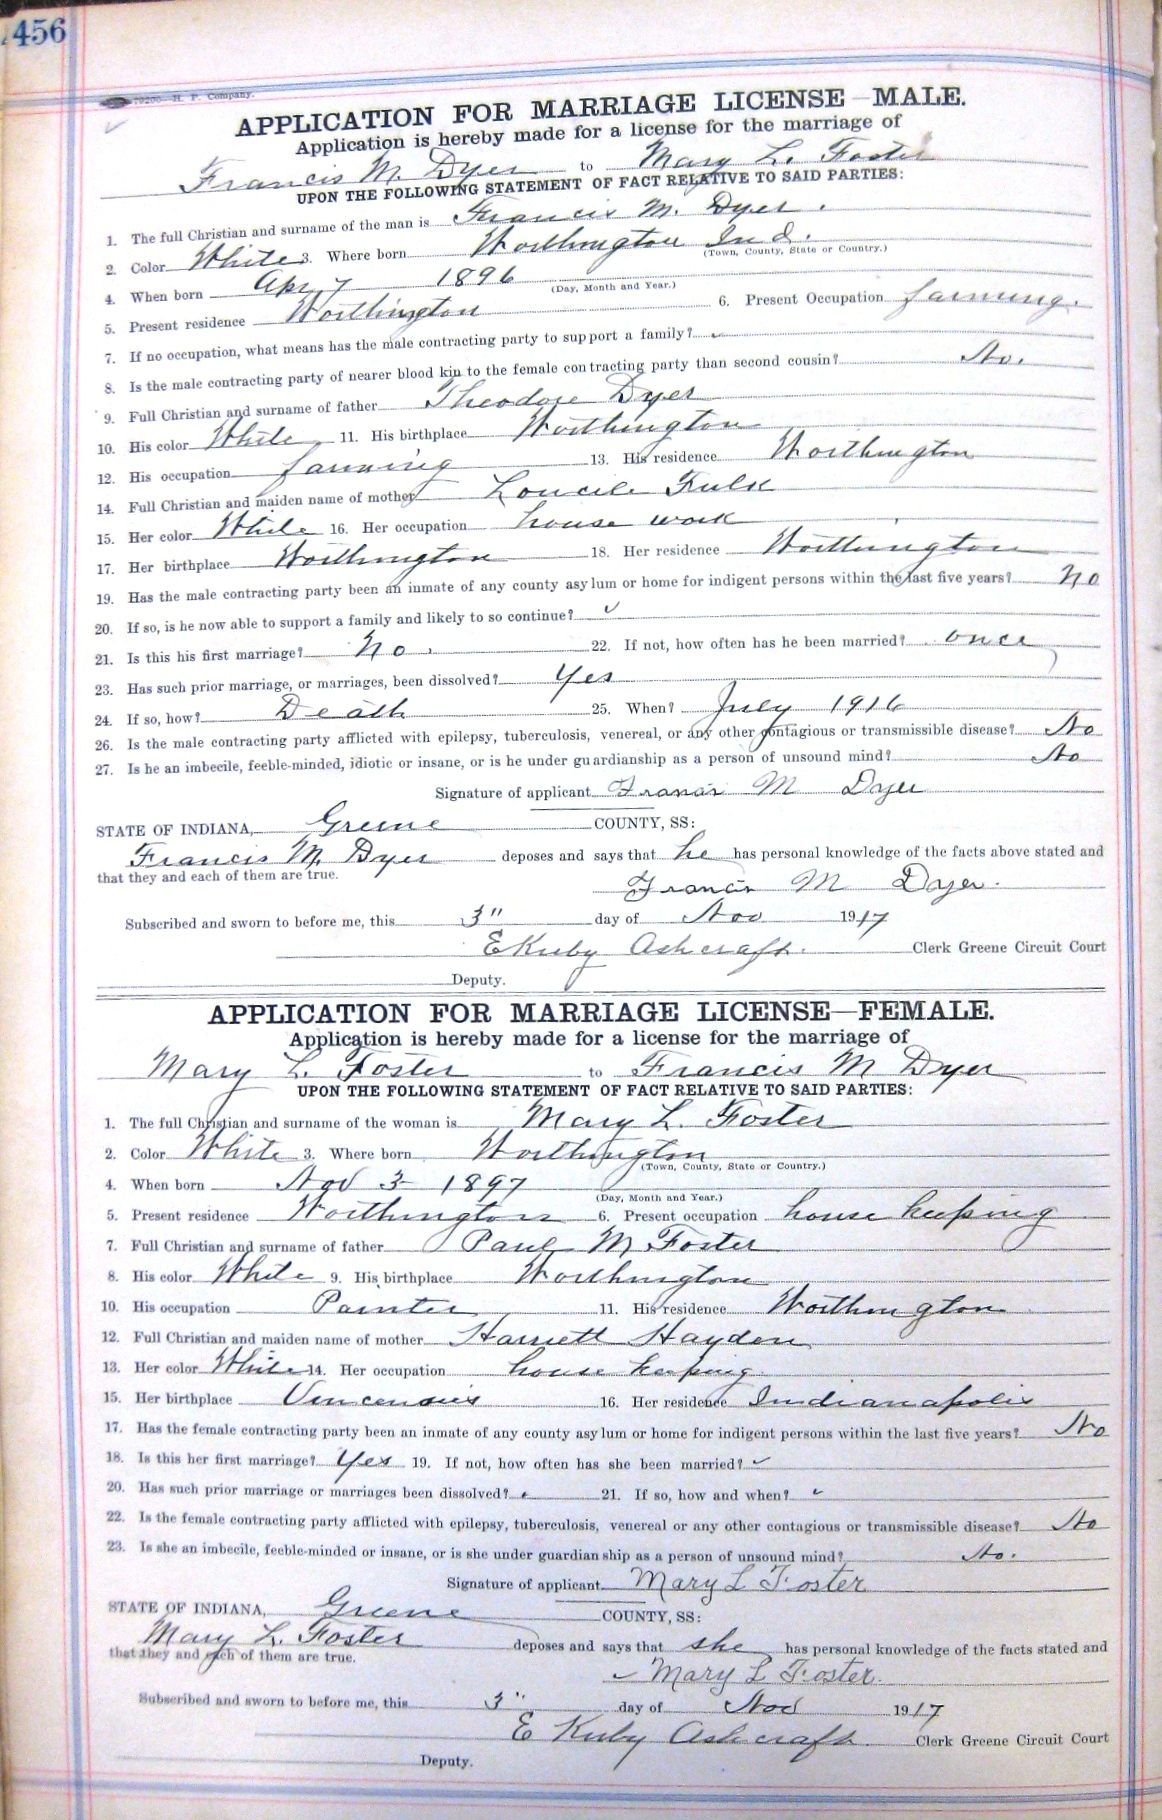 456
79200—H. P. Company.
APPLICATION FOR MARRIAGE LICENSE—MALE.
Application is hereby made for a license for the marriage of
Francis M. Dyer to Mary L. Foster
UPON THE FOLLOWING STATEMENT OF FACT RELATIVE TO SAID PARTIES:
1. The full Christian and surname of the man is Francis M. Dyer.
2. Color White 3. Where born Worthington Ind.
(Town, County, State or Country.)
4. When born Apr 7 1896
(Day, Month and Year.)
5. Present residence Worthington 6. Present Occupation farming.
7. If no occupation, what means has the male contracting party to support a family?
8. Is the male contracting party of nearer blood kin to the female contracting party than second cousin? No.
9. Full Christian and surname of father Theodore Dyer
10. His color White 11. His birthplace Worthington
12. His occupation farming 13. His residence Worthington
14. Full Christian and maiden name of mother Fulk
15. Her color White 16. Her occupation house work
17. Her birthplace Worthington 18. Her residence Worthington
19. Has the male contracting party been an inmate of any county asylum or home for indigent persons within the last five years? No
20. If so, is he now able to support a family and likely to so continue? ✓
21. Is this his first marriage? No. 22. If not, how often has he been married? once
23. Has such prior marriage, or marriages, been dissolved? Yes
24. If so, how? Death 25. When? July 1916
26. Is the male contracting party afflicted with epilepsy, tuberculosis, venereal, or any other contagious or transmissible disease? No
27. Is he an imbecile, feeble-minded, idiotic or insane, or is he under guardianship as a person of unsound mind? No
Signature of applicant Francis M Dyer
STATE OF INDIANA, Greene COUNTY, SS:
Francis M. Dyer deposes and says that he has personal knowledge of the facts above stated and
that they and each of them are true.
Francis M Dyer.
Subscribed and sworn to before me, this 3" day of Nov 1917
E Kirby Ashcraft. Clerk Greene Circuit Court
Deputy.
APPLICATION FOR MARRIAGE LICENSE—FEMALE.
Application is hereby made for a license for the marriage of
Mary L. Foster to Francis M Dyer
UPON THE FOLLOWING STATEMENT OF FACT RELATIVE TO SAID PARTIES:
1. The full Christian and surname of the woman is Mary L. Foster
2. Color White 3. Where born Worthington
(Town, County, State or Country.)
4. When born Nov 3 1897
(Day, Month and Year.)
5. Present residence Worthington 6. Present occupation house keeping
7. Full Christian and surname of father Paul M Foster
8. His color White 9. His birthplace Worthington
10. His occupation Painter 11. His residence Worthington
12. Full Christian and maiden name of mother Harriett Hayden
13. Her color White 14. Her occupation house keeping
15. Her birthplace Vincennes 16. Her residence Indianapolis
17. Has the female contracting party been an inmate of any county asylum or home for indigent persons within the last five years? No
18. Is this her first marriage? Yes 19. If not, how often has she been married? ✓
20. Has such prior marriage or marriages been dissolved? ✓ 21. If so, how and when? ✓
22. Is the female contracting party afflicted with epilepsy, tuberculosis, venereal or any other contagious or transmissible disease? No
23. Is she an imbecile, feeble-minded or insane, or is she under guardianship as a person of unsound mind? No.
Signature of applicant Mary L Foster
STATE OF INDIANA, Greene COUNTY, SS:
Mary L. Foster deposes and says that she has personal knowledge of the facts stated and
that they and each of them are true.
Mary L Foster.
Subscribed and sworn to before me, this 3" day of Nov 1917
E Kirby Ashcraft Clerk Greene Circuit Court
Deputy.